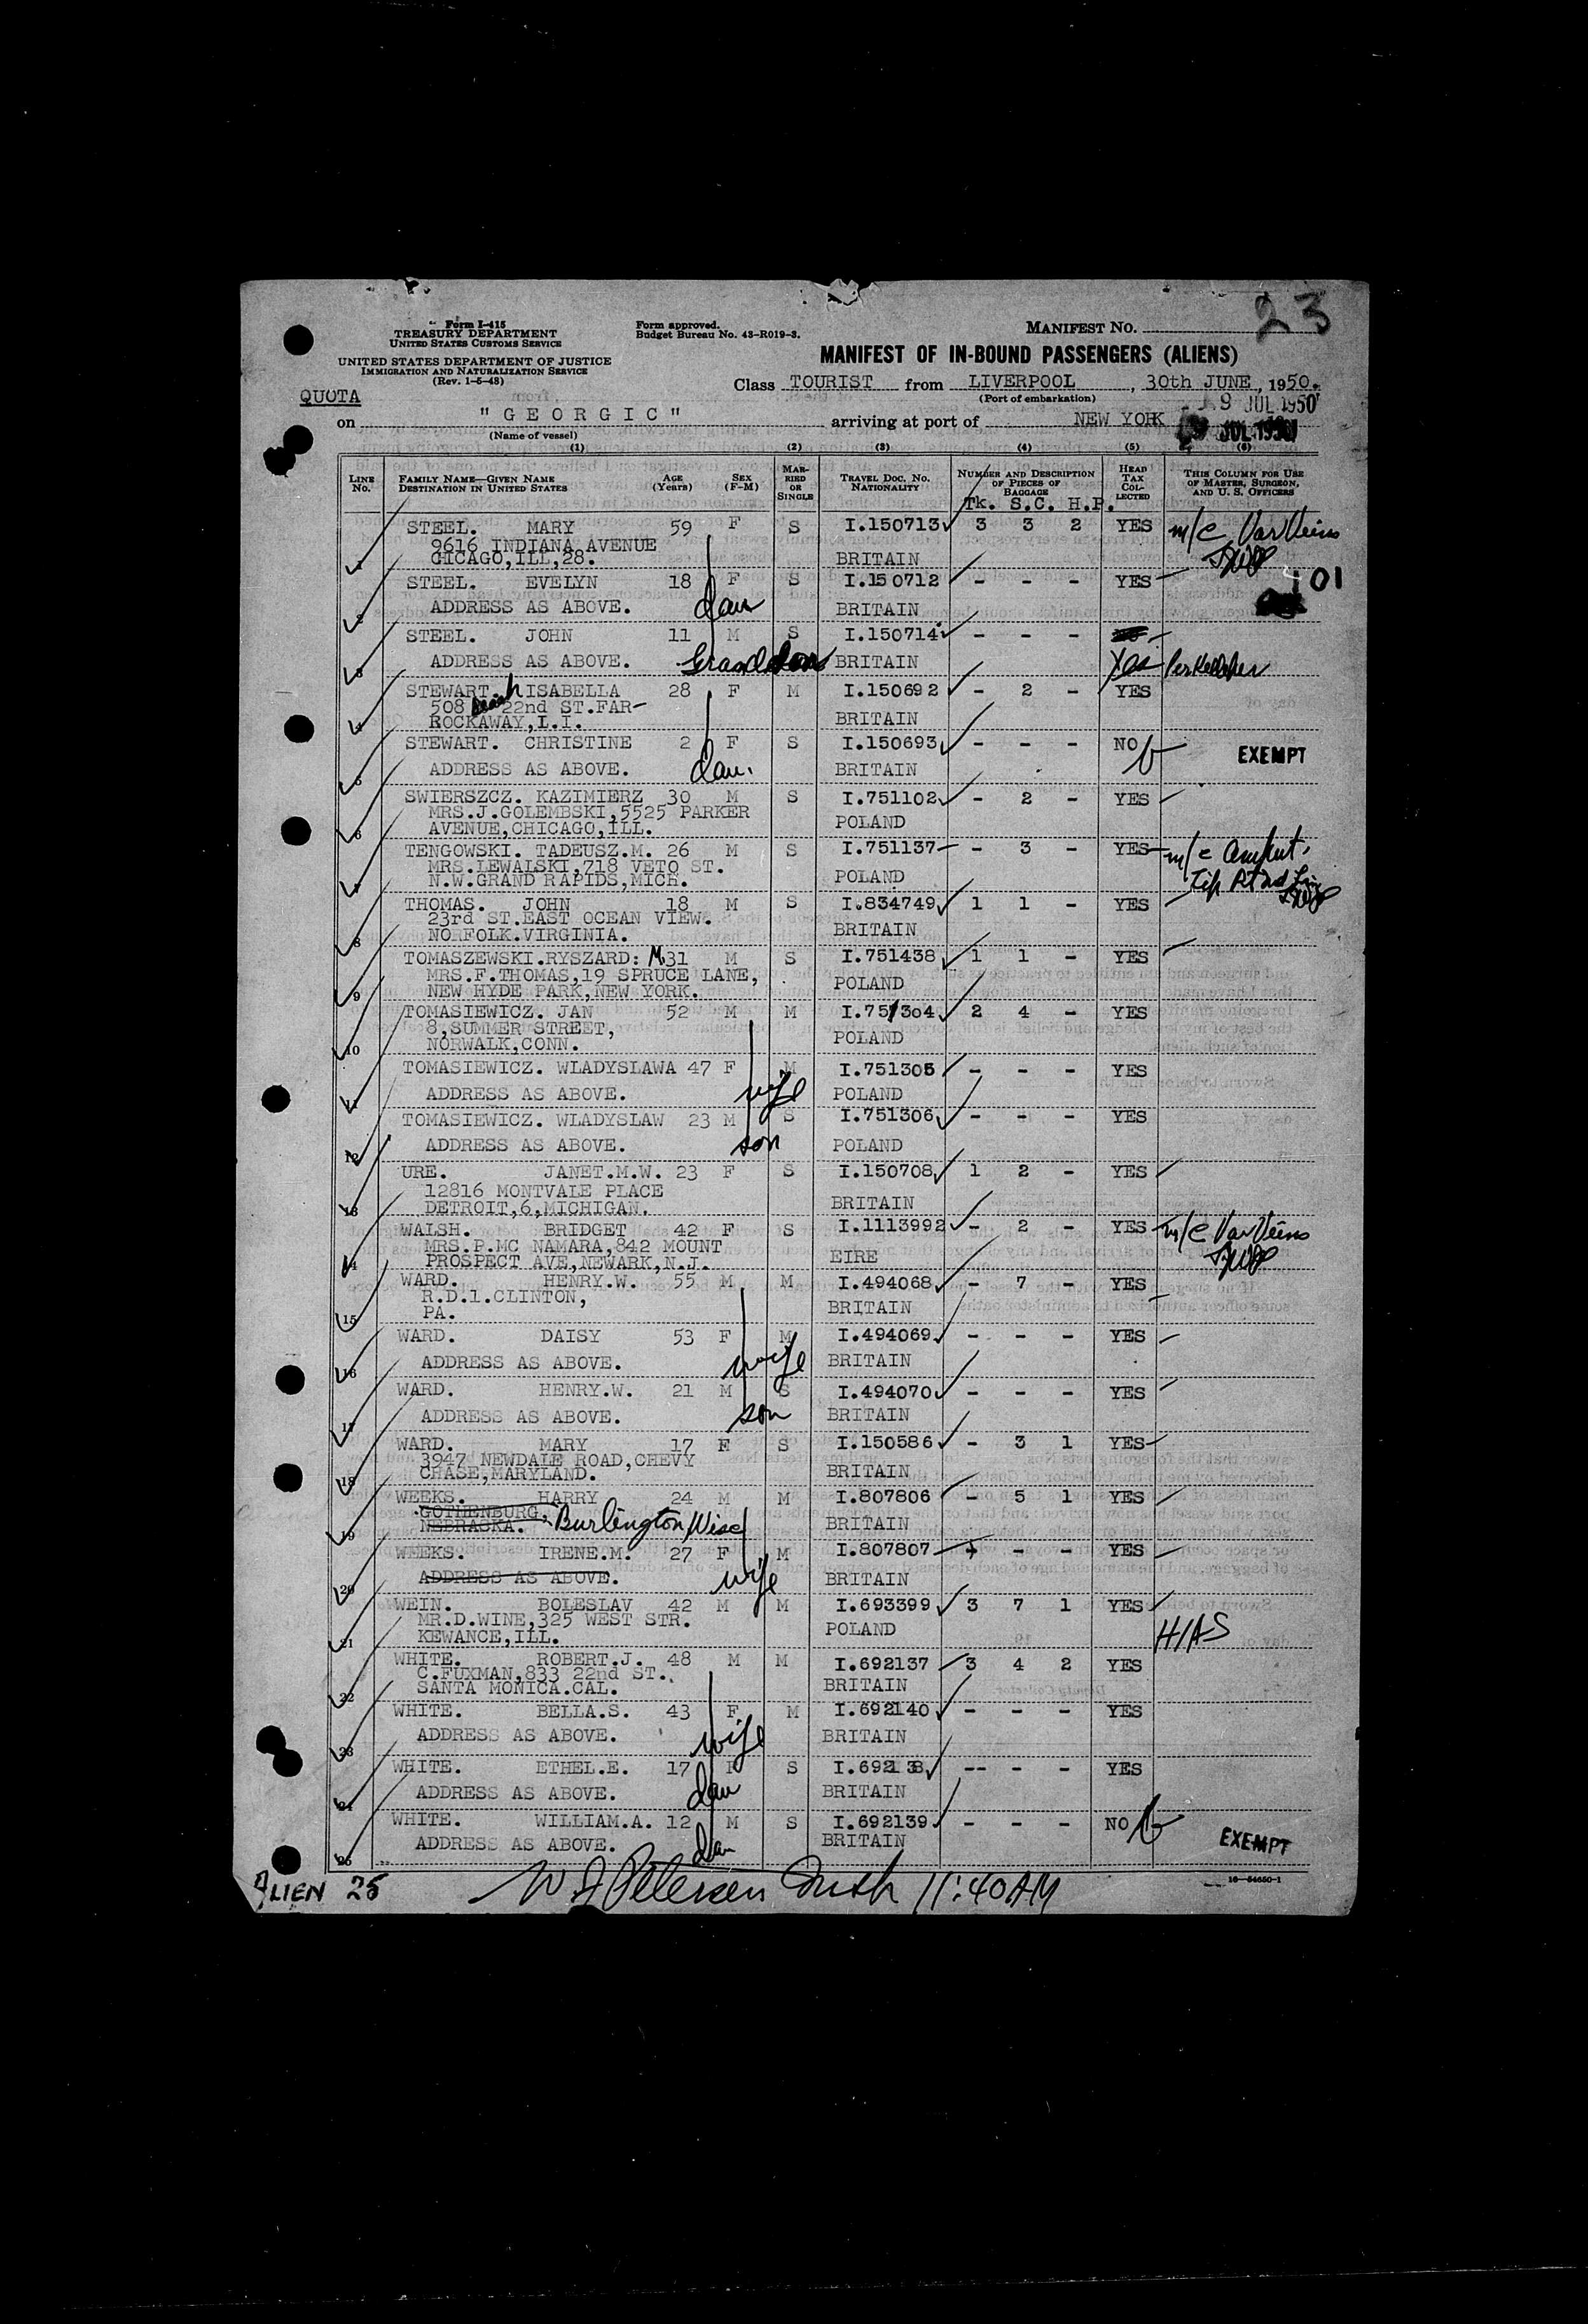 23
Form I-415
TREASURY DEPARTMENT
UNITED STATES CUSTOMS SERVICE
UNITED STATES DEPARTMENT OF JUSTICE
IMMIGRATION AND NATURALIZATION SERVICE
(Rev. 1-5-48)
Form approved.
Budget Bureau No. 43-R019-3.
MANIFEST NO.
MANIFEST OF IN-BOUND PASSENGERS (ALIENS)
Class TOURIST from LIVERPOOL, 30th JUNE, 1950.
(Port of embarkation)
QUOTA
9 JUL 1950
on "GEORGIC" arriving at port of NEW YORK
JUL 1950
(Name of vessel)
(1) (2) (3) (4) (5) (6)
LINE NO. FAMILY NAME—GIVEN NAME DESTINATION IN UNITED STATES AGE (YEARS) SEX (F-M) MARRIED OR SINGLE TRAVEL DOC. NO. NATIONALITY NUMBER AND DESCRIPTION OF PIECES OF BAGGAGE HEAD TAX COLLECTED THIS COLUMN FOR USE OF MASTER, SURGEON, AND U. S. OFFICERS
Tk. S.C. H.P.
STEEL. MARY 59 F S I.150713 3 3 2 YES m/c Var Veins
9616 INDIANA AVENUE
1 CHICAGO,ILL,28. BRITAIN
STEEL. EVELYN 18 F S I.150712 - - - YES 01
2 ADDRESS AS ABOVE. dau BRITAIN
STEEL. JOHN 11 M S I.150714 - - -
3 ADDRESS AS ABOVE. Grandson BRITAIN Yes Per Kelleher
STEWART. ISABELLA 28 F M I.150692 - 2 - YES
508 22nd ST.FAR-
4 ROCKAWAY,L.I. BRITAIN
STEWART. CHRISTINE 2 F S I.150693 - - - NO EXEMPT
5 ADDRESS AS ABOVE. dau. BRITAIN
SWIERSZCZ. KAZIMIERZ 30 M S I.751102 - 2 - YES
MRS.J.GOLEMBSKI,5525 PARKER
6 AVENUE,CHICAGO,ILL. POLAND
TENGOWSKI. TADEUSZ.M. 26 M S I.751137 - 3 - YES m/c Amput.
MRS.LEWALSKI,718 VETO ST.
7 N.W.GRAND RAPIDS,MICH. POLAND
THOMAS. JOHN 18 M S I.834749 1 1 - YES
23rd ST.EAST OCEAN VIEW.
8 NORFOLK.VIRGINIA. BRITAIN
TOMASZEWSKI.RYSZARD: M. 31 M S I.751438 1 1 - YES
MRS.F.THOMAS,19 SPRUCE LANE,
9 NEW HYDE PARK,NEW YORK. POLAND
TOMASIEWICZ. JAN 52 M M I.751304 2 4 - YES
8,SUMMER STREET,
10 NORWALK,CONN. POLAND
TOMASIEWICZ. WLADYSLAWA 47 F M I.751305 - - - YES
ADDRESS AS ABOVE. wife POLAND
TOMASIEWICZ. WLADYSLAW 23 M S I.751306 - - - YES
12 ADDRESS AS ABOVE. son POLAND
URE. JANET.M.W. 23 F S I.150708 1 2 - YES
12816 MONTVALE PLACE
13 DETROIT,6,MICHIGAN. BRITAIN
WALSH. BRIDGET 42 F S I.1113992 - 2 - YES m/c Var Veins
MRS.P.MC NAMARA,842 MOUNT
14 PROSPECT AVE,NEWARK,N.J. EIRE
WARD. HENRY.W. 55 M M I.494068 - 7 - YES
R.D.1.CLINTON,
15 PA. BRITAIN
WARD. DAISY 53 F M I.494069 - - - YES
16 ADDRESS AS ABOVE. wife BRITAIN
WARD. HENRY.W. 21 M S I.494070 - - - YES
17 ADDRESS AS ABOVE. son BRITAIN
WARD. MARY 17 F S I.150586 - 3 1 YES
3947 NEWDALE ROAD,CHEVY
18 CHASE,MARYLAND. BRITAIN
WEEKS. HARRY 24 M M I.807806 - 5 1 YES
GOTHENBURG,
19 NEBRASKA. Burlington Wisc BRITAIN
WEEKS. IRENE.M. 27 F M I.807807 - - - YES
20 ADDRESS AS ABOVE. wife BRITAIN
WEIN. BOLESLAV 42 M M I.693399 3 7 1 YES
MR.D.WINE,325 WEST STR.
21 KEWANCE,ILL. POLAND HIAS
WHITE. ROBERT.J. 48 M M I.692137 3 4 2 YES
C.FUXMAN,833 22nd ST.
22 SANTA MONICA.CAL. BRITAIN
WHITE. BELLA.S. 43 F M I.692140 - - - YES
23 ADDRESS AS ABOVE. wife BRITAIN
WHITE. ETHEL.E. 17 F S I.692138 -- - - YES
24 ADDRESS AS ABOVE. dau BRITAIN
WHITE. WILLIAM.A. 12 M S I.692139 - - - NO
25 ADDRESS AS ABOVE. BRITAIN EXEMPT
ALIEN 25 W J Petersen 11:40 AM
16—54650-1